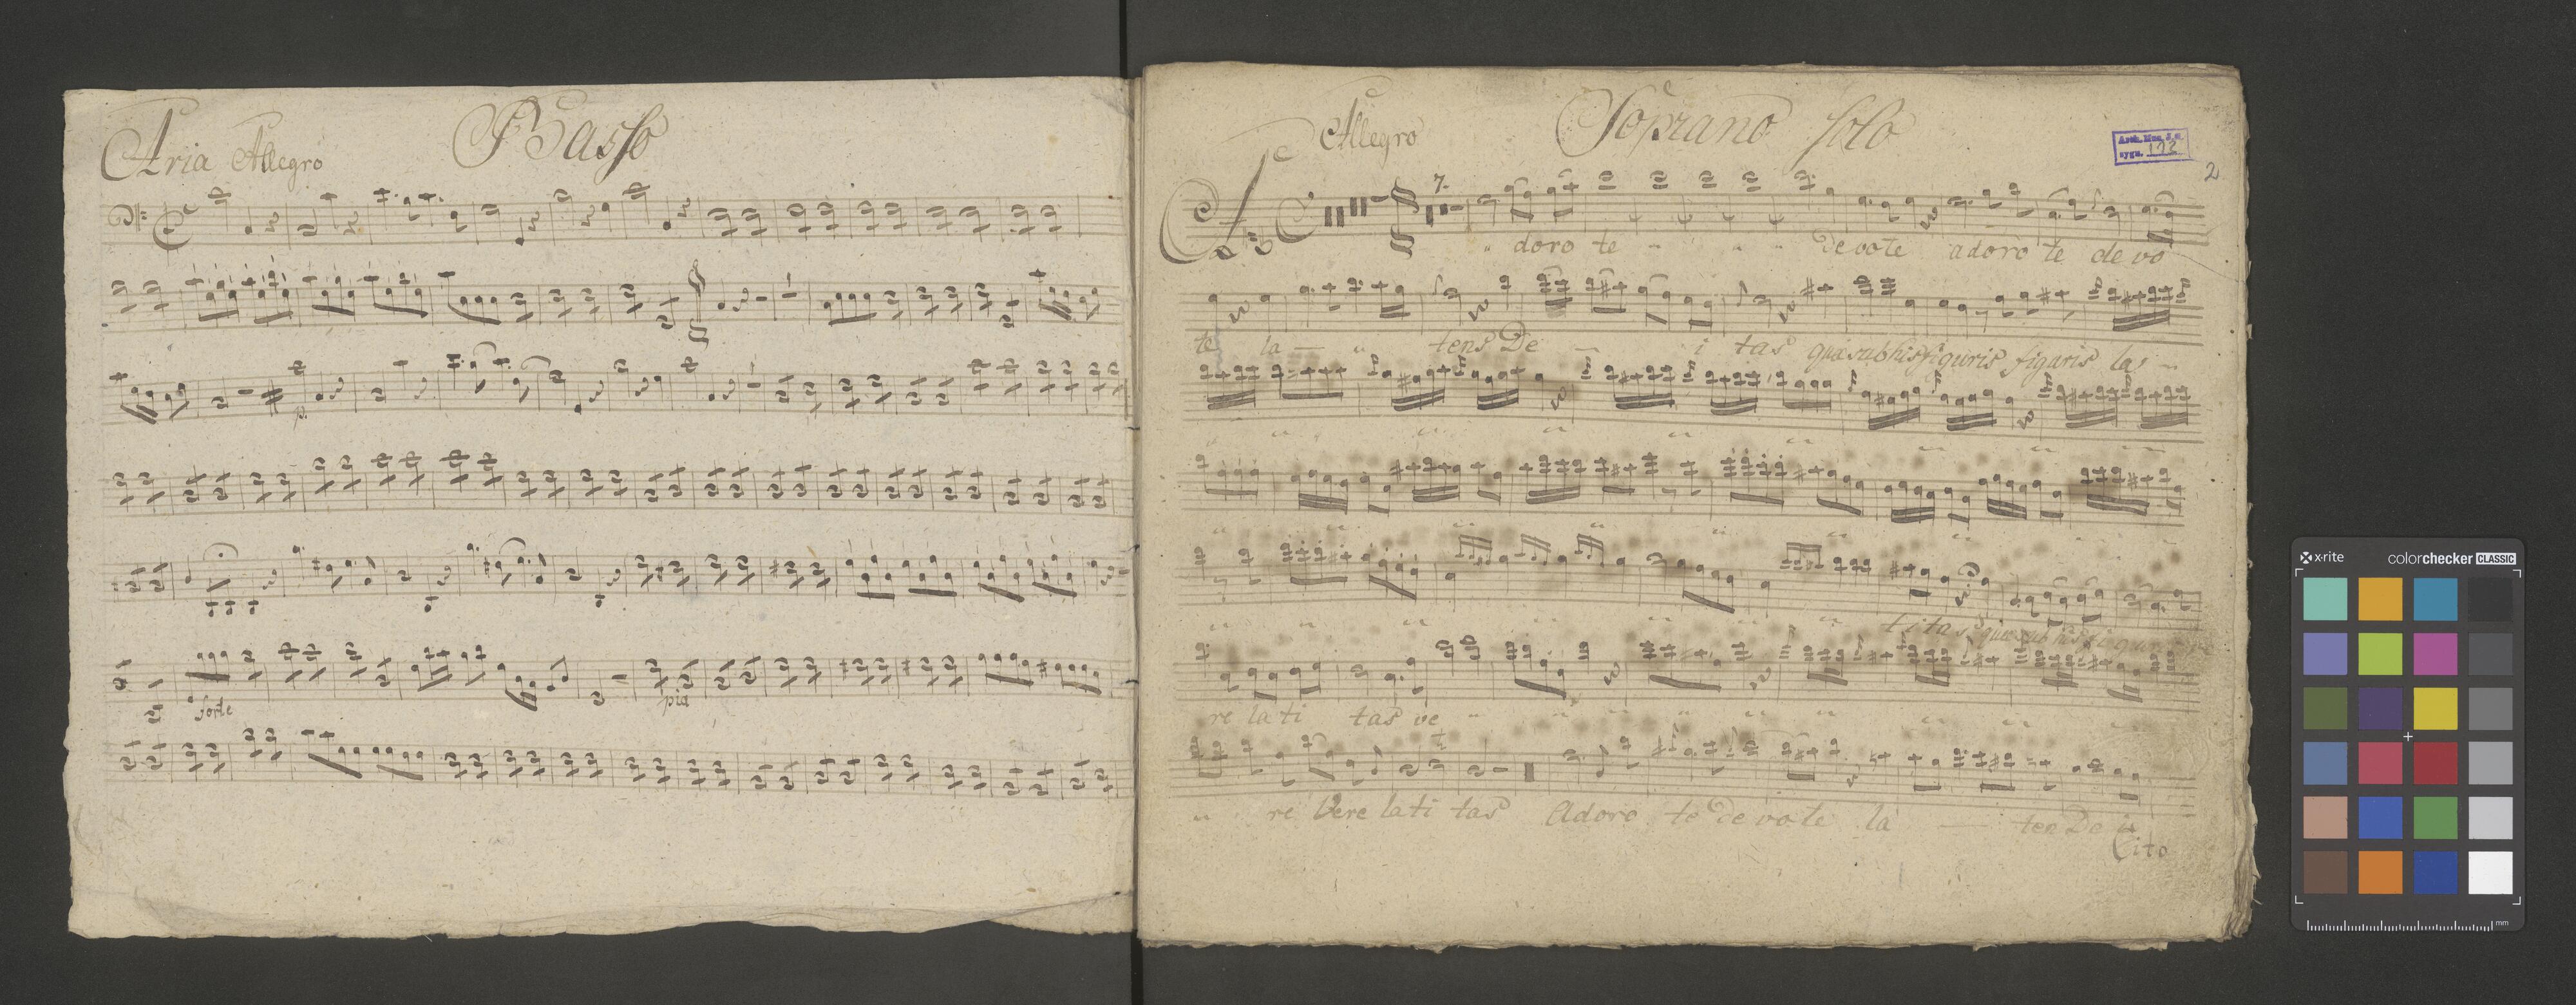 Basso
Aria Allegro
p.
forte
pia
Allegro Soprano Solo
Arch. Mus. J. G.
sygn. 172
2
7.
doro te " " " Devote adoro te devo
te la — " tens De — i tas quæ sub his figuris figuris las "
ti tas quæ sub his figu
re la ti tas ve "
" re Vere la ti tas Adoro te De vo te la — ten De i
Cito
x-rite colorchecker CLASSIC
mm